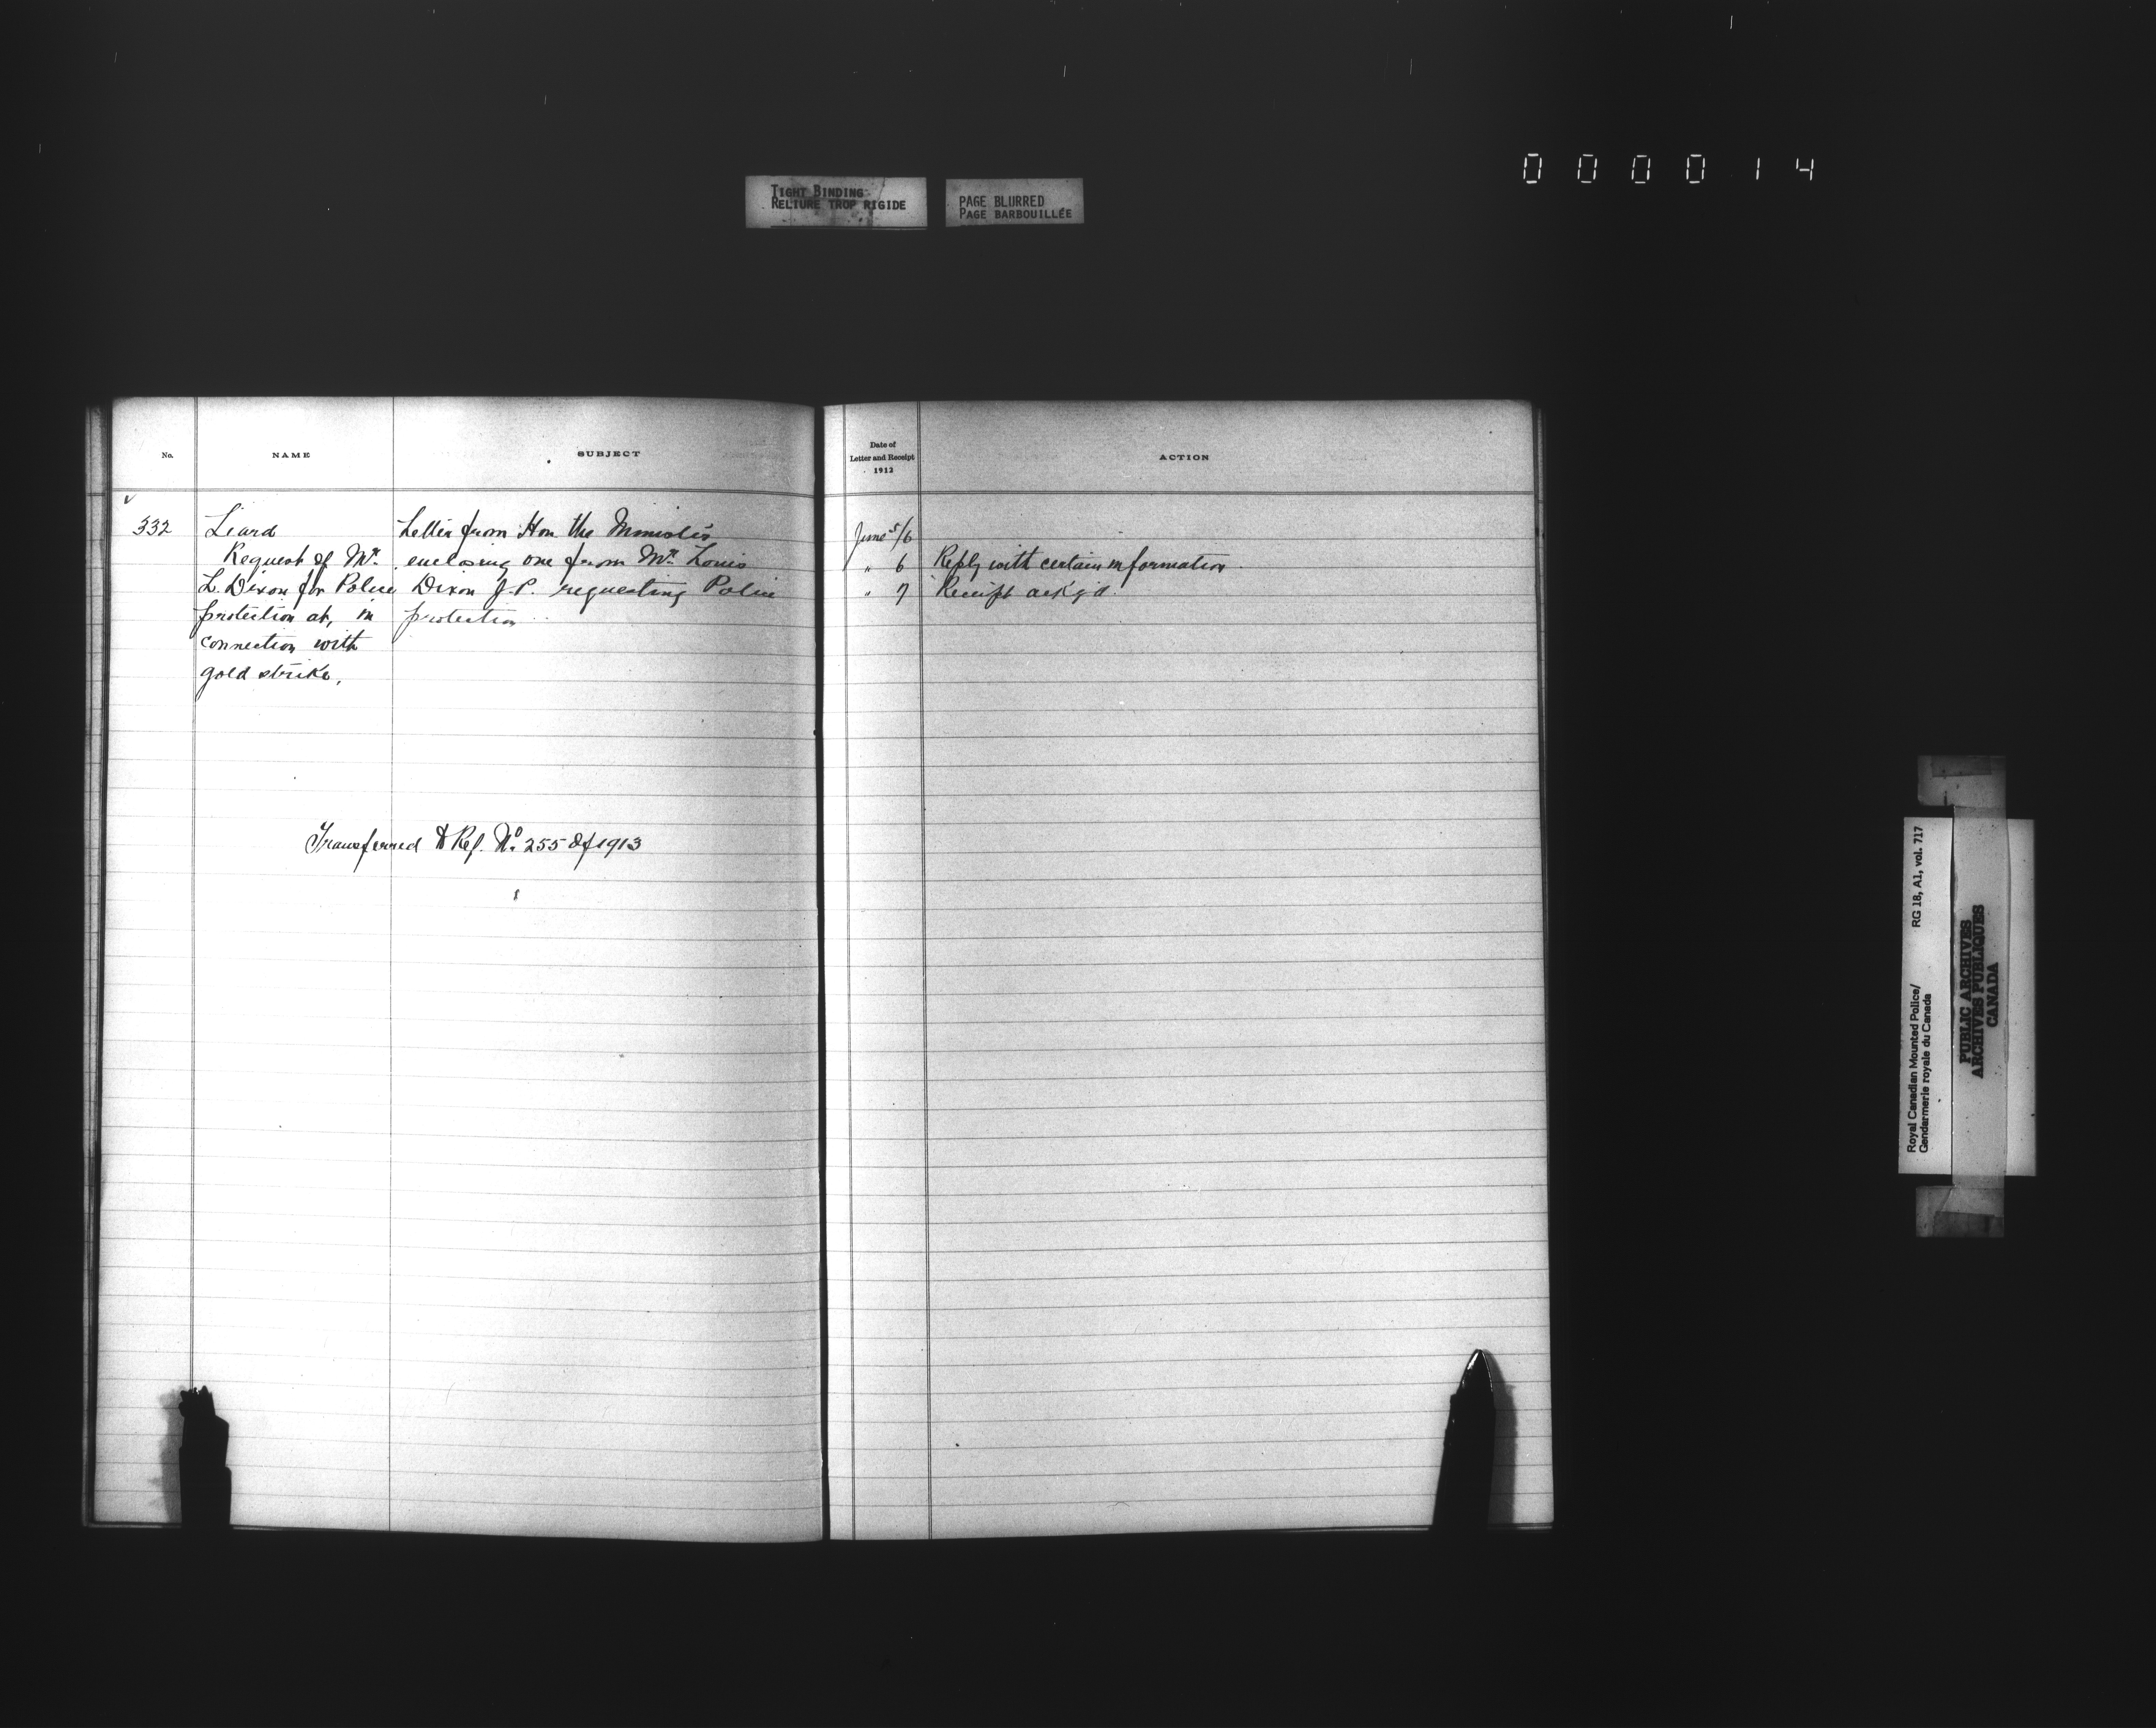 0 0 0 0 1 4
TIGHT BINDING
RELIURE TROP RIGIDE
PAGE BLURRED
PAGE BARBOUILLÉE
No.
NAME
SUBJECT
Date of
Letter and Receipt
1912
ACTION
332
Liard
Request of Mr.
L. Dixon for Police
protection at, in
connection with
gold strike.
Letter from Hon the Minister
enclosing one from Mr. Louis
Dixon J.P. requesting Police
protection
June 5/6
" 6 Reply with certain information
" 7 Receipt ack'g'd.
Transferred to Ref. No. 255 of 1913
Royal Canadian Mounted Police/
Gendarmerie royale du Canada
RG 18, A1, vol. 717
PUBLIC ARCHIVES
ARCHIVES PUBLIQUES
CANADA